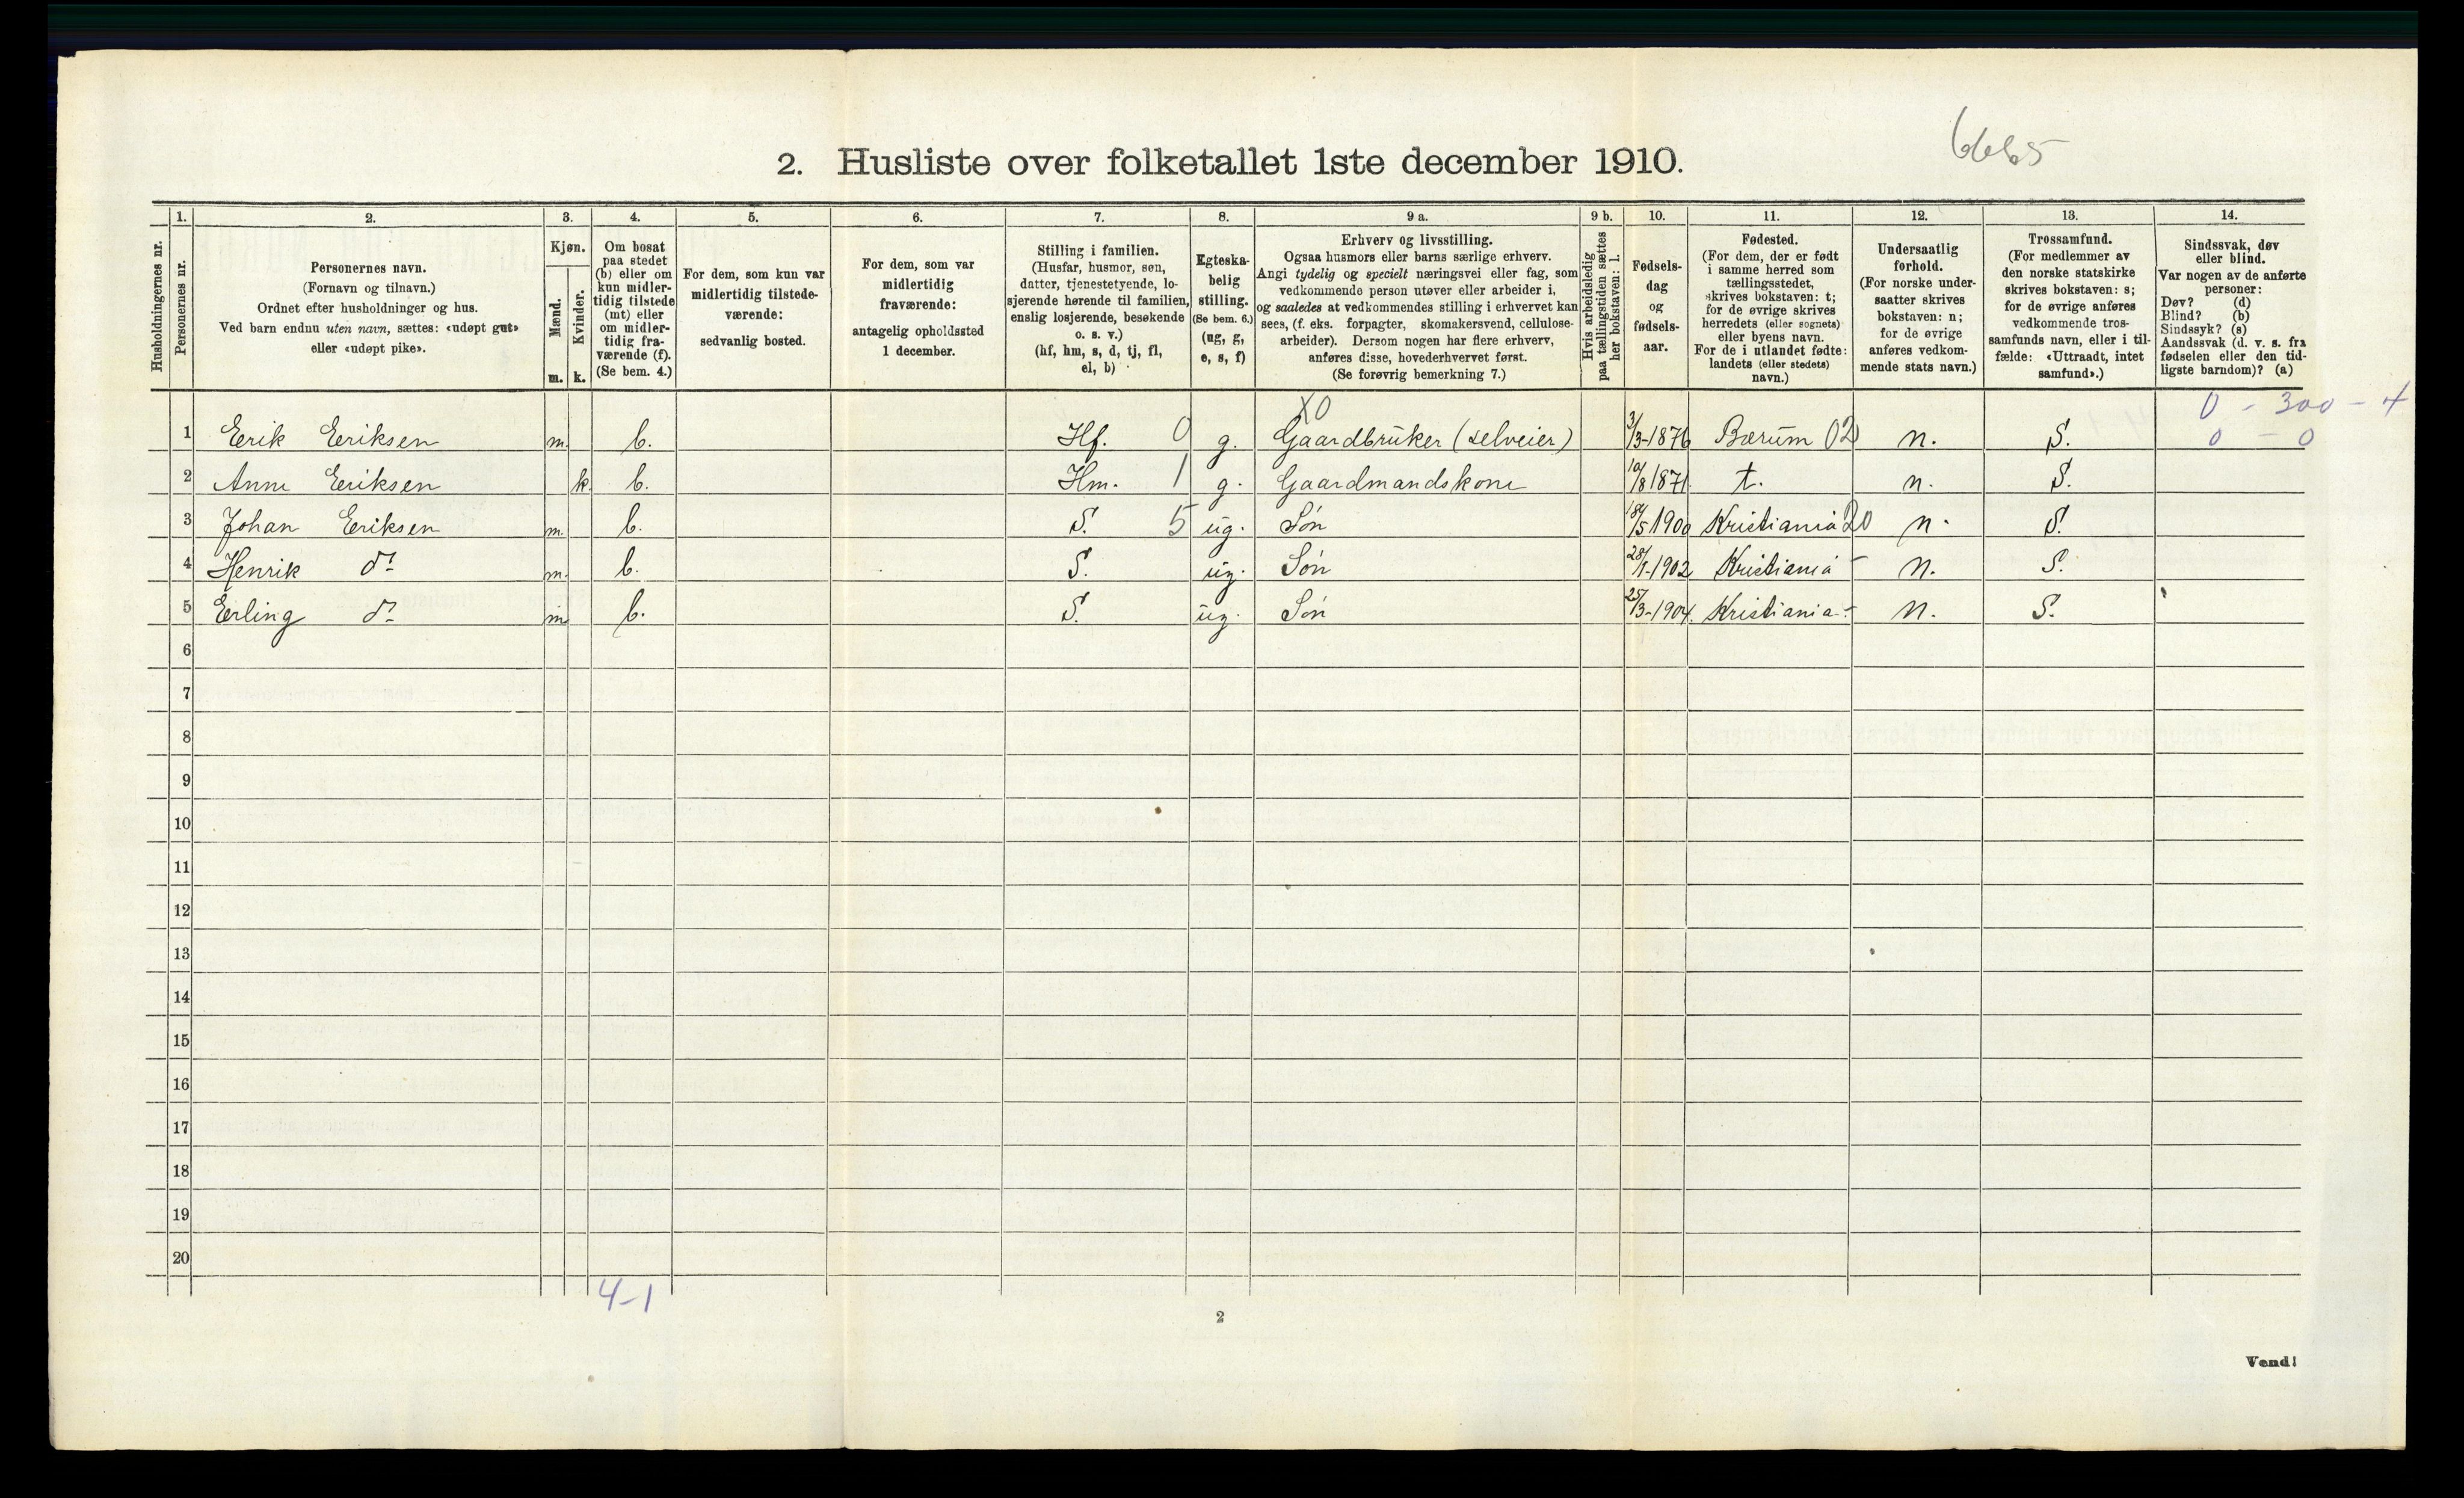 6665
2. Husliste over folketallet 1ste december 1910.
Husholdningernes nr.
1.
Personernes nr.
2.
Personernes navn.
(Fornavn og tilnavn.)
Ordnet efter husholdninger og hus.
Ved barn endnu uten navn, sættes: «udøpt gut»
eller «udøpt pike».
3.
Kjøn.
Mænd.
Kvinder.
m. k.
4.
Om bosat
paa stedet
(b) eller om
kun midler-
tidig tilstede
(mt) eller
om midler-
tidig fra-
værende (f).
(Se bem. 4.)
5.
For dem, som kun var
midlertidig tilstede-
værende:
sedvanlig bosted.
6.
For dem, som var
midlertidig
fraværende:
antagelig opholdssted
1 december.
7.
Stilling i familien.
(Husfar, husmor, søn,
datter, tjenestetyende, lo-
sjerende hørende til familien,
enslig losjerende, besøkende
o. s. v.)
(hf, hm, s, d, tj, fl,
el, b)
8.
Egteska-
belig
stilling.
(Se bem. 6.)
(ug, g,
e, s, f)
9 a.
Erhverv og livsstilling.
Ogsaa husmors eller barns særlige erhverv.
Angi tydelig og specielt næringsvei eller fag, som
vedkommende person utøver eller arbeider i,
og saaledes at vedkommendes stilling i erhvervet kan
sees, (f. eks. forpagter, skomakersvend, cellulose-
arbeider). Dersom nogen har flere erhverv,
anføres disse, hovederhvervet først.
(Se forøvrig bemerkning 7.)
9 b.
Hvis arbeidsledig
paa tællingstiden sættes
her bokstaven: l.
10.
Fødsels-
dag
og
fødsels-
aar.
11.
Fødested.
(For dem, der er født
i samme herred som
tællingsstedet,
skrives bokstaven: t;
for de øvrige skrives
herredets (eller sognets)
eller byens navn.
For de i utlandet fødte:
landets (eller stedets)
navn.)
12.
Undersaatlig
forhold.
(For norske under-
saatter skrives
bokstaven: n;
for de øvrige
anføres vedkom-
mende stats navn.)
13.
Trossamfund.
(For medlemmer av
den norske statskirke
skrives bokstaven: s;
for de øvrige anføres
vedkommende tros-
samfunds navn, eller i til-
fælde: «Uttraadt, intet
samfund».)
14.
Sindssvak, døv
eller blind.
Var nogen av de anførte
personer:
Døv? (d)
Blind? (b)
Sindssyk? (s)
Aandssvak (d. v. s. fra
fødselen eller den tid-
ligste barndom)? (a)
X0 0 - 300 - 4
1 Erik Eriksen m. b. Hf. 0 g. Gaardbruker (selveier) 3/3-1876 Bærum 02 n. S. 0 - 0
2 Anne Eriksen k. b. Hm. 1 g. Gaardmandskone 19/8 1871 t. n. S.
3 Johan Eriksen m. b. S. 5 ug. Søn 18/5 1900 Kristiania 20 n. S.
4 Henrik do m. b. S. ug. Søn 28/1-1902 Kristiania - n. S.
5 Erling do m b. S. ug. Søn 25/3-1904. Kristiania - n. S.
6
7
8
9
10
11
12
13
14
15
16
17
18
19
20
4-1
2
Vend!